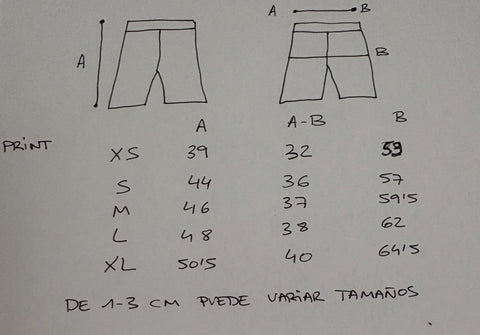 A B
A B
A A-B B
PRINT
XS 39 32 53
S 44 36 57
M 46 37 59'5
L 48 38 62
XL 50'5 40 64'5
DE 1-3 CM PUEDE VARIAR TAMAÑOS